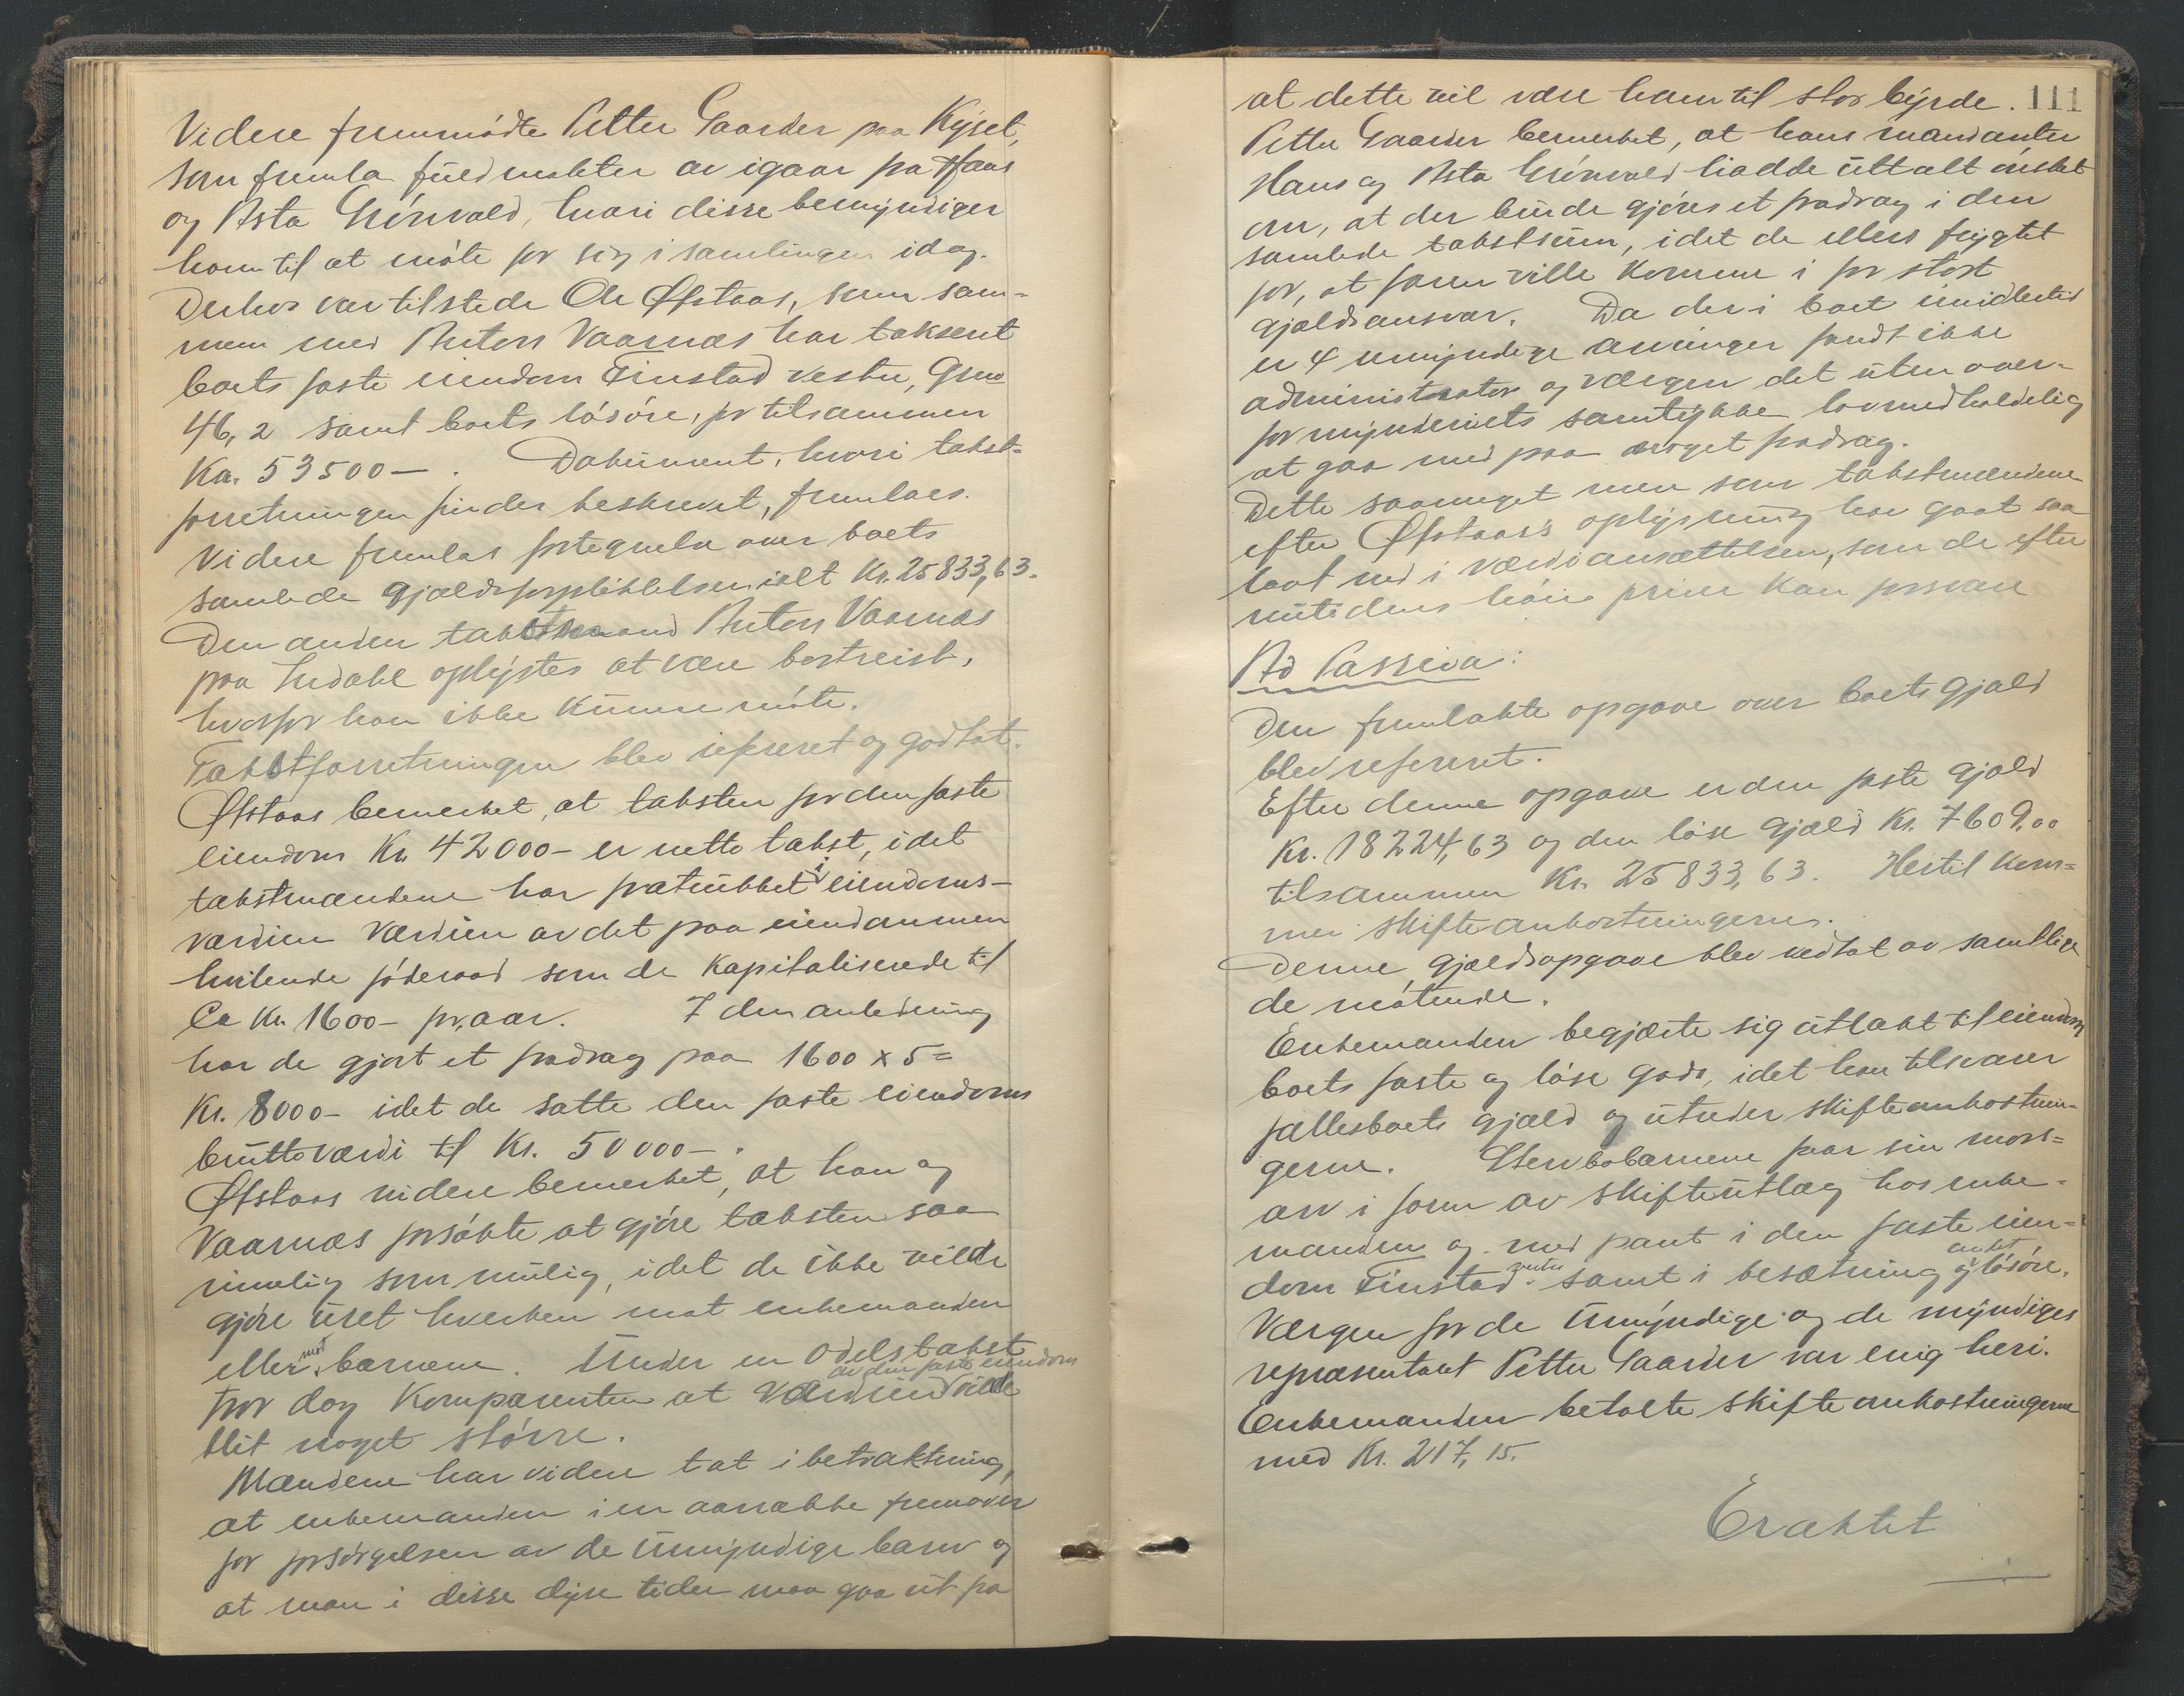 Videre fremmødte Petter Gaarder paa Kjset,
som fremla fuldmakter av igaar fra Hans
og Asta Grönvold, hvori disse bemyndiger
ham til at møte for sig i samlingen idag.
Derhos var tilstede Ole Øfstaas, som sam=
men med Anton Vaarnæs har taksert
boets faste eiendom Finstad vestre, Gno
46, 2 samt boets løsøre, for tilsammen
Kr. 53500—. Dokument, hvori takst-
forretningen findes beskrevet, fremlaes.
Videre fremlaes fortegnelse over boets
samlede gjældsforpliktelser ialt Kr. 25833,63.
Den anden takstmand Anton Vaarnæs
paa Lidahl oplystes at være bortreist,
hvorfor han ikke kunne møte.
Takstforretningen blev referert og godtat.
Øfstaas bemerket, at taksten for den faste
eiendom Kr. 42000— er netto takst, idet
takstmændene har fratrukket i eiendoms-
værdien værdien av det paa eiendommen
hvilende føderaad som de kapitaliserede til
Ca Kr. 1600— pr. aar. I den anledning
har de gjort et fradrag paa 1600 x 5 =
Kr. 8000— idet de satte den faste eiendoms
brutto værdi til Kr. 50000—.
Øfstaas videre bemerket, at han og
Vaarnæs forsøkte at gjøre taksten saa
rimelig som mulig, idet de ikke vilde
gjøre uret hverken mot enkemanden
eller mot barnene. Under en odelstakst
tror dog komparenten at værdien av den faste eiendom vilde
blit noget større.
Mændene har videre tat i betraktning,
at enkemanden i en aarrække fremover
for forsørgelsen av de umyndige barn og
at man i disse dyre tider maa gaa ut fra
111
at dette vil være ham til stor byrde.
Petter Gaarder bemerket, at hans mandanter
Hans og Asta Grönvold hadde uttalt ønsket
om, at der burde gjøres et fradrag i den
samlede takstsum, idet de ellers frygtet
for, at faren ville komme i for stort
gjældsansvar. Da der i boet imidlertid
er 4 umyndige arvinger fandt ikke
administrator og værgen det uten over-
formynderiets samtykke lovmedholdelig
at gaa med paa noget fradrag.
Dette saameget mer som takstmændene
efter Øfstaas's oplysning har gaat saa
lavt ned i værdiansættelsen, som de efter
nutidens høie priser kan forsvare
Ad Passiva:
Den fremlakte opgave over boets gjæld
blev referert.
Efter denne opgave er den faste gjæld
Kr. 18224,63 og den løse gjæld Kr. 7609.00
tilsammen Kr. 25833,63. Hertil kom=
mer skifteomkostningerne.
Denne gjældsopgave blev vedtat av samtlige
de møtende.
Enkemanden begjærte sig utlakt til eiendom
boets faste og løse gods, idet han tilsvarer
fællesboets gjæld og utreder skifteomkostnin-
gerne. Stervbobarnene faar sin mors=
arv i form av skifteutlæg hos enke-
manden og med pant i den faste eien=
dom Finstad vestre samt i besætning og andet løsøre.
Værgen for de umyndige og de myndiges
repræsentant Petter Gaarder var enig heri.
Enkemanden betalte skifteomkostningerne
med Kr. 217,15.
Eraktet